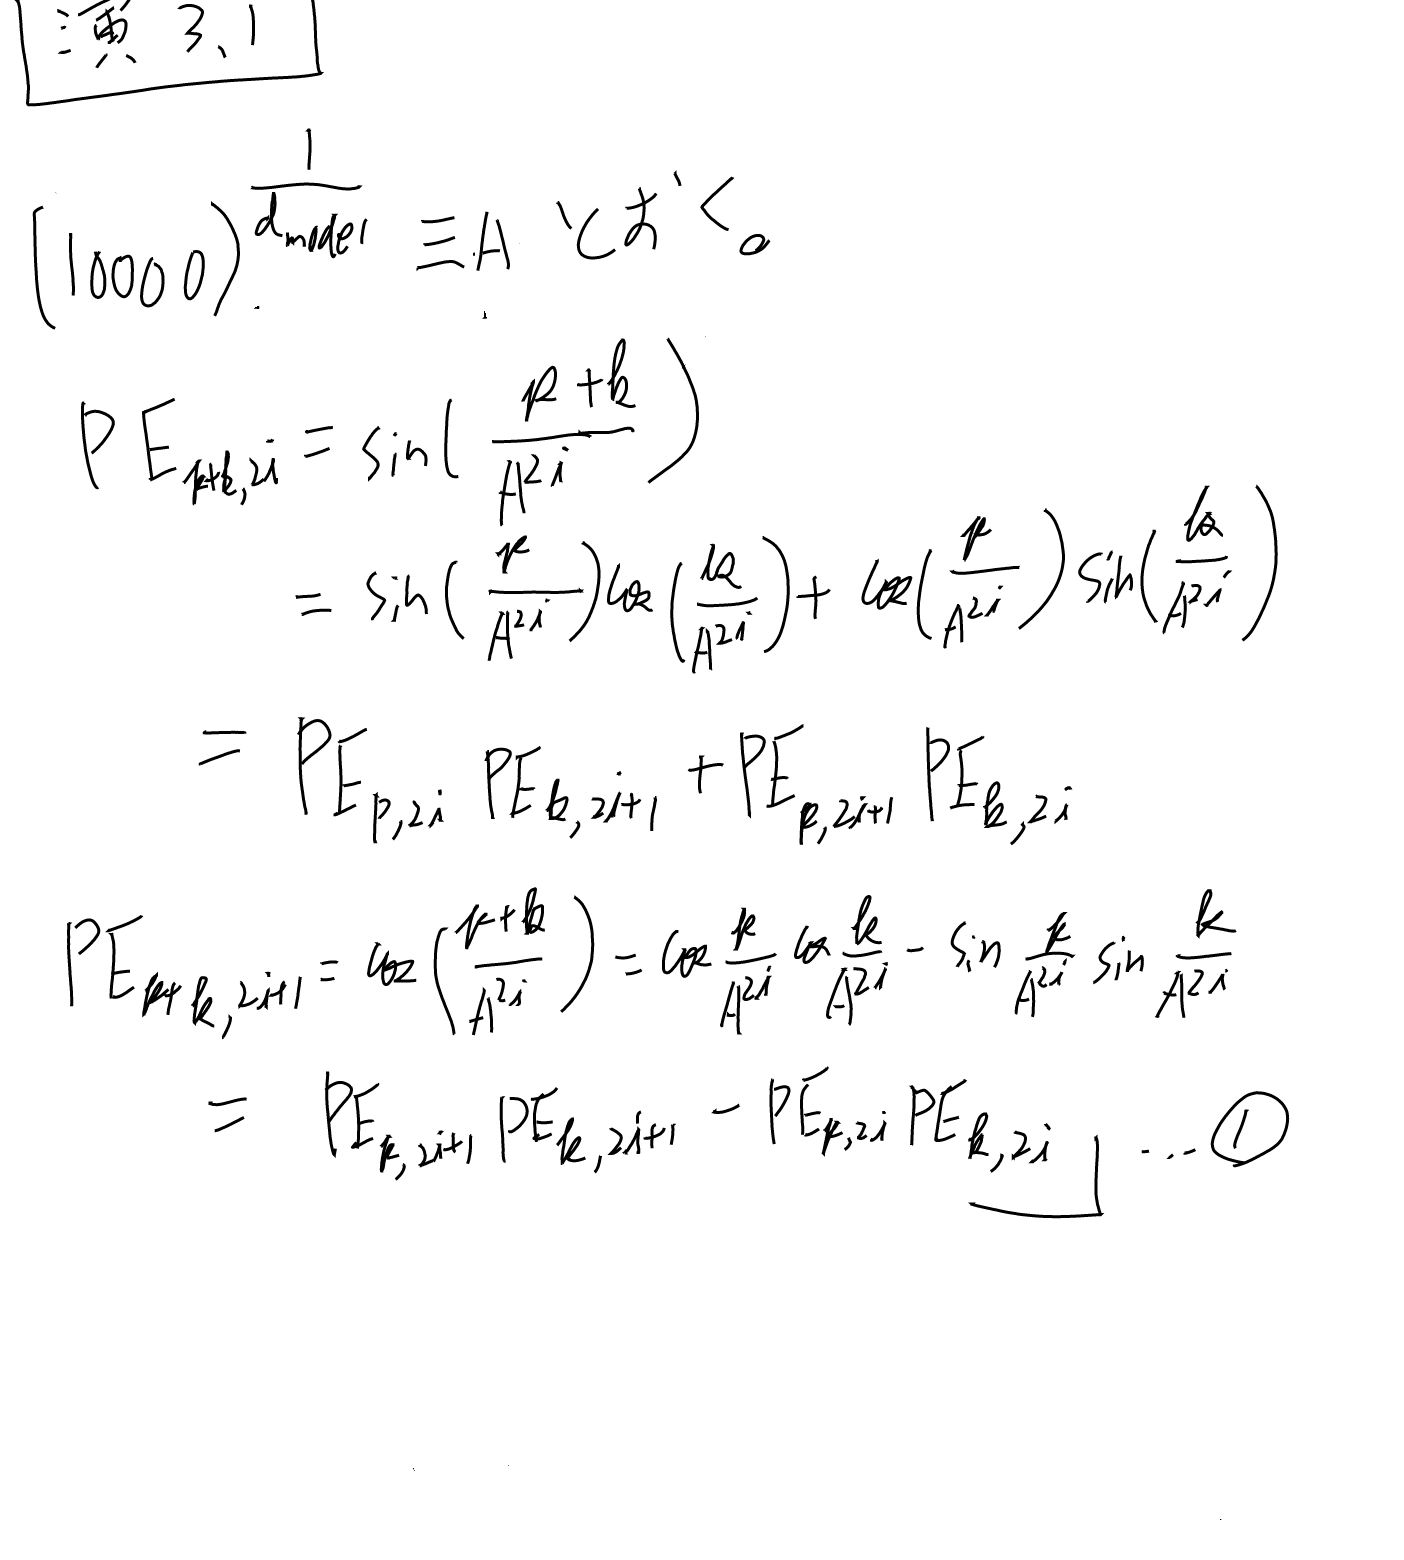 演 3.1
(10000)^{\frac{1}{d_{model}}} ≡ A とおく。
PE_{p+k,2i} = sin( \frac{p+k}{A^{2i}} )
= sin( \frac{p}{A^{2i}} ) cos( \frac{k}{A^{2i}} ) + cos( \frac{p}{A^{2i}} ) sin( \frac{k}{A^{2i}} )
= PE_{p,2i} PE_{k,2i+1} + PE_{p,2i+1} PE_{k,2i}
PE_{p+k,2i+1} = cos( \frac{p+k}{A^{2i}} ) = cos \frac{p}{A^{2i}} cos \frac{k}{A^{2i}} - sin \frac{p}{A^{2i}} sin \frac{k}{A^{2i}}
= PE_{p,2i+1} PE_{k,2i+1} - PE_{p,2i} PE_{k,2i} ... ①